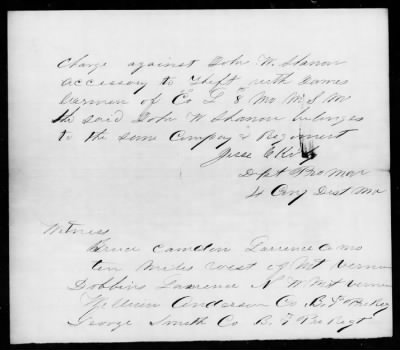 Charge against John W. Shanon
accessory to Theft with James
Carmen of Co L 8 Mo M. S. M
the said John W Shanon belonges
to the same Company & Regiment
Jesse C
Dpt Pro Mar
4 Dist Mo
Witness
Camdon Lorence Co mo
ten miles west of Mt Vernon
Dobbins Lawrence N W Mt Vernon
William Anderson Co B. 7
George Smith Co B. 7